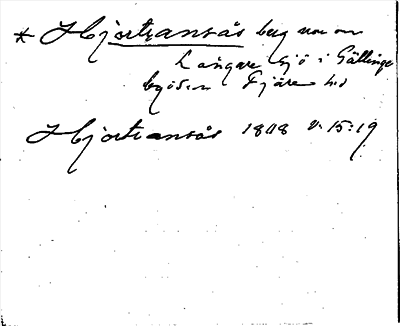 * Hjortransås berg nor om
Langare sjö i Gällinge
Fjäre hd
Hjortransås 1808 v. 15:19